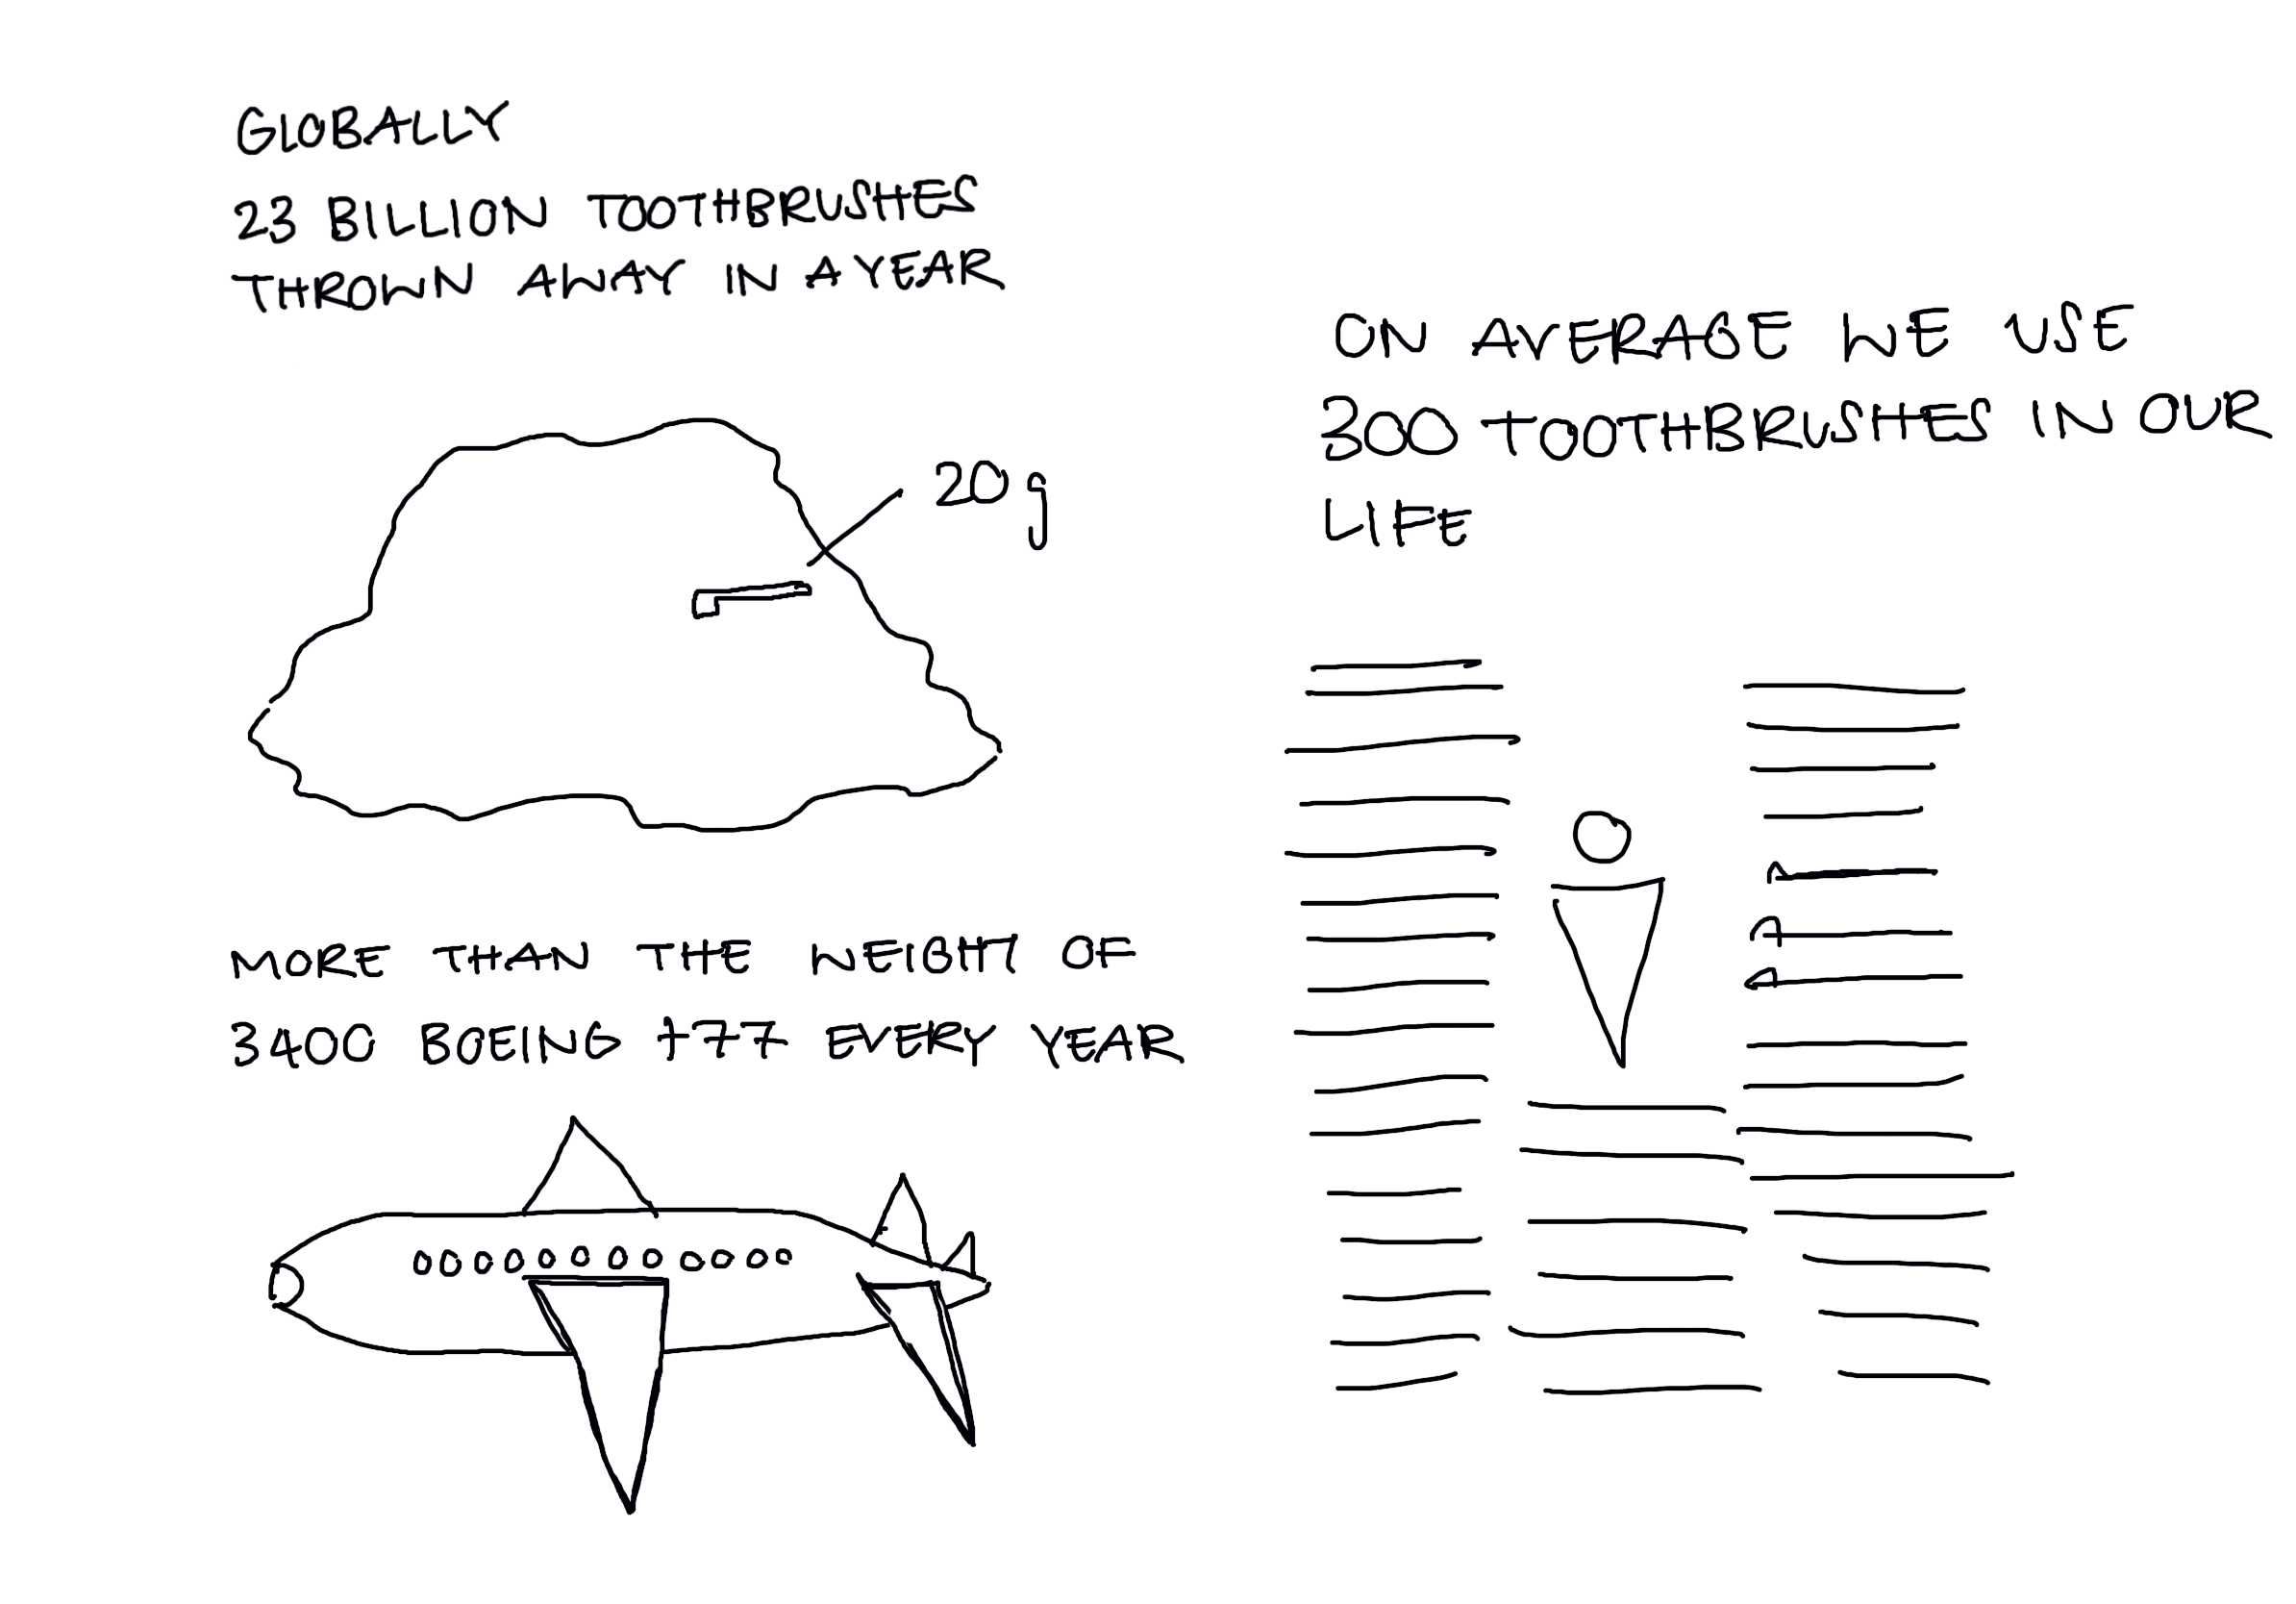 GLOBALLY
23 BILLION TOOTHBRUSHES
THROWN AWAY IN A YEAR
20g
MORE THAN THE WEIGHT OF
3400 BOEING 777 EVERY YEAR
ON AVERAGE WE USE
300 TOOTHBRUSHES IN OUR
LIFE